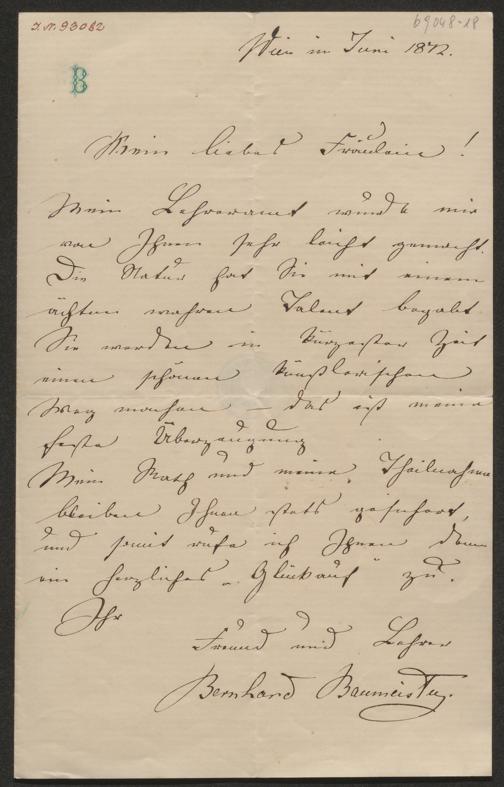 I.N. 93082
69048-18
Wien im Juni 1872.
B
Mein liebes Fräulein!
Mein Lehreramt wurde mir
von Ihnen sehr leicht gemacht.
Die Natur hat Sie mit einem
ächten wahren Talent begabt
Sie werden in kürzester Zeit
einen schönen künstlerischen
Weg machen – das ist meine
feste Überzeugung
Mein Rath und meine Theilnahme
bleiben Ihnen stets gesichert,
und somit rufe ich Ihnen denn
ein herzliches „Glück auf" zu.
Ihr
Freund und Lehrer
Bernhard Baumeister.